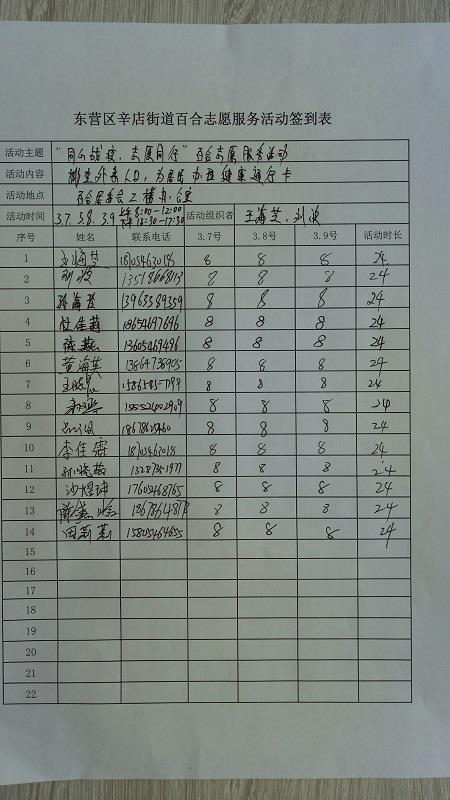 东营区辛店街道百合志愿服务活动签到表
活动主题 "同心战疫，志愿同行"百合志愿服务活动
活动内容 排查外来人口，为居民办理健康通行卡
活动地点 百合居委会2楼办公室
活动时间 3.7 3.8 3.9 上午8:00-12:00 13:30-17:30 活动组织者 王海芝、刘波
序号 姓名 联系电话 3.7号 3.8号 3.9号 活动时长
1 王海芝 8 8 8 24
2 刘波 8 8 8 24
3 孙海苍 13963389359 8 8 8 24
4 杜佳莉 18654697696 8 8 8 24
5 陈燕 13605469496 8 8 8 24
6 黄海英 13864738905 8 8 8 24
7 8 8 8 24
8 155521002909 8 8 8 24
9 8 8 8 24
10 李佳霖 8 8 8 24
11 孙晓燕 8 8 8 24
12 沙煜坤 17605468765 8 8 8 24
13 8 8 8 24
14 田莉莉 15805464655 8 8 8 24
15
16
17
18
19
20
21
22